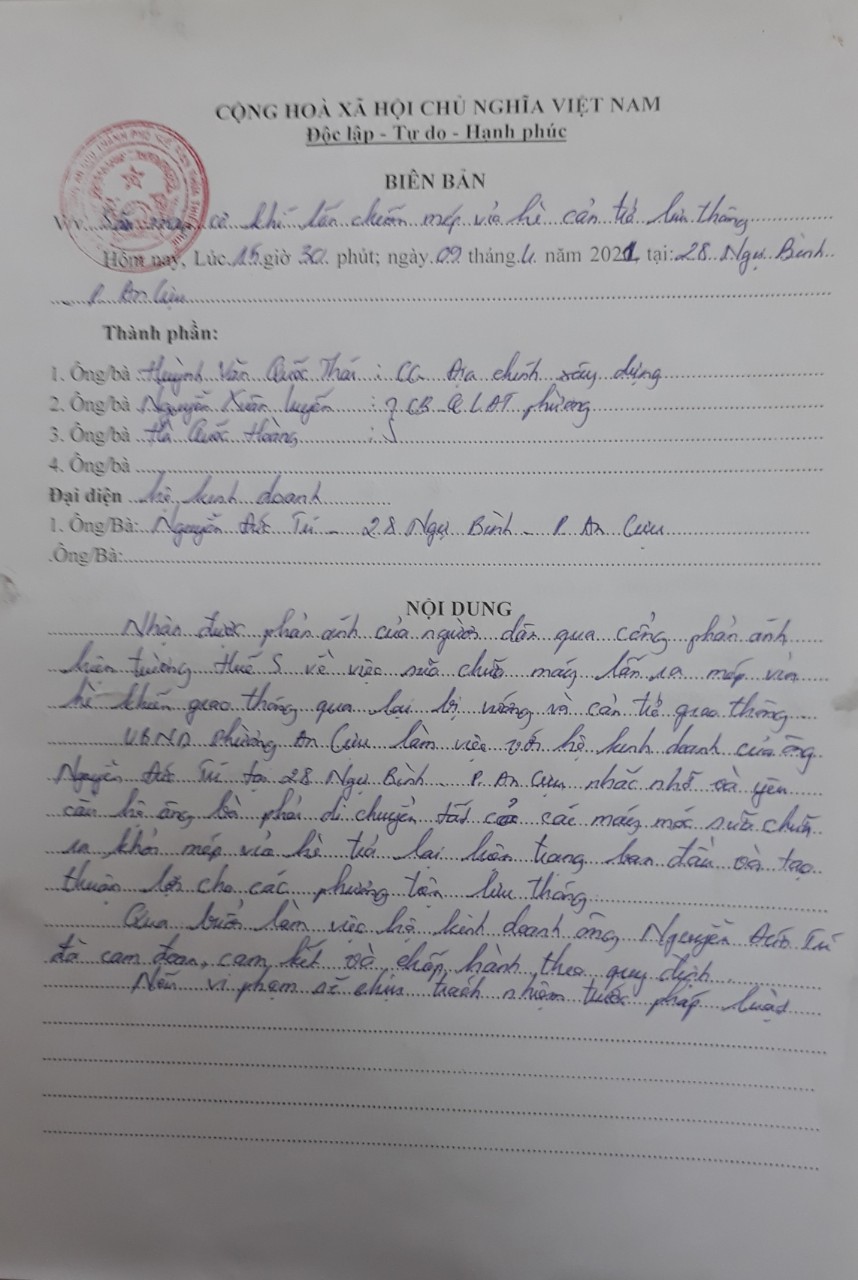 CỘNG HOÀ XÃ HỘI CHỦ NGHĨA VIỆT NAM
Độc lập - Tự do - Hạnh phúc
BIÊN BẢN
V/v: cơ khí lấn chiếm mép vỉa hè cản trở lưu thông
Hôm nay, Lúc 15 giờ 30 phút; ngày 09 tháng 4 năm 2021, tại: 28 Ngự Bình
P. An Cựu
Thành phần:
1. Ông/bà Huỳnh Văn Quốc Thái : CC Địa chính xây dựng
2. Ông/bà Nguyễn Xuân Luyến : CB QLĐT phường
3. Ông/bà Hà Quốc Hoàng :
4. Ông/bà
Đại diện hộ kinh doanh
1. Ông/Bà: Nguyễn Đức Trí - 28 Ngự Bình - P. An Cựu
.Ông/Bà:
NỘI DUNG
Nhận được phản ánh của người dân qua cổng phản ánh
hiện tường Huế S về việc sửa chữa máy lấn ra mép vỉa
hè khiến giao thông qua lại bị vướng và cản trở giao thông
UBND Phường An Cựu làm việc với hộ kinh doanh của ông
Nguyễn Đức Trí tại 28 Ngự Bình - P. An Cựu nhắc nhở và yêu
cầu hộ ông bà phải di chuyển tất cả các máy móc sửa chữa
ra khỏi mép vỉa hè trả lại hiện trạng ban đầu và tạo
thuận lợi cho các phương tiện lưu thông
Qua buổi làm việc hộ kinh doanh ông Nguyễn Đức Trí
đã cam đoan, cam kết và chấp hành theo quy định
Nếu vi phạm sẽ chịu trách nhiệm trước pháp luật